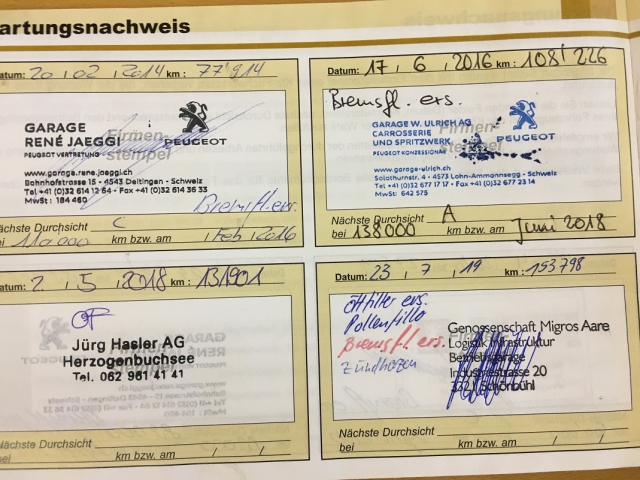 artungsnachweis
atum: 20 , 02 , 2014 km : 77'914
GARAGE
RENÉ JAEGGI
PEUGEOT VERTRETUNG
Firmen-
stempel
PEUGEOT
www.garage.rene.jaeggi.ch
Bahnhofstrasse 15 - 4543 Deitingen - Schweiz
Tel +41 (0)32 614 12 64 - Fax +41 (0)32 614 36 33
MwSt : 184 460
Bremsfl. ers.
Nächste Durchsicht C
bei 110'000 km bzw. am , Feb , 2016
Datum: 17 , 6 , 2016 km : 108'226
Bremsfl. ers.
GARAGE W. ULRICH AG
CARROSSERIE
UND SPRITZWERK
PEUGEOT KONZESSIONÄR
Firmen-
PEUGEOT
www.garage-ulrich.ch
Solothurnstr. 4 - 4573 Lohn-Ammannsegg - Schweiz
Tel +41 (0)32 677 17 17 - Fax +41 (0)32 677 23 14
MwSt: 642 575
Nächste Durchsicht A
bei 138000 km bzw. am Juni 2018
atum: 2 , 5 , 2018 km : 131901
Jürg Hasler AG
Herzogenbuchsee
Tel. 062 961 41 41
Nächste Durchsicht
bei km bzw. am / /
Datum: 23 , 7 , 19 km : 153798
Ölfilter ers.
Pollenfilter
Bremsfl. ers.
Zündkerzen
Genossenschaft Migros Aare
Logistik Infrastruktur
Betriebsgarage
Industriestrasse 20
3321 Schönbühl
Nächste Durchsicht
bei km bzw. am / /